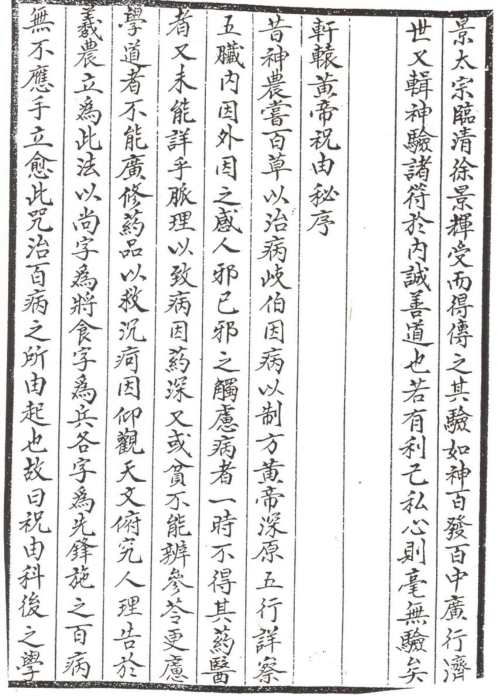 景太宗臨清徐景輝受而得傳之其驗如神百發百中廣行濟
世又輯神驗諸符於内誠善道也若有利己私心則毫無驗矣
軒轅黃帝祝由秘序
昔神農嘗百草以治病岐伯因病以制方黃帝深原五行詳察
五臟内因外因之感人邪已邪之觸慮病者一時不得其藥醫
者又未能詳乎脈理以致病因藥深又或貧不能辨參苓更慮
學道者不能廣修藥品以救沉疴因仰觀天文俯究人理告於
羲農立為此法以尚字為將食字為兵各字為先鋒施之百病
無不應手立愈此咒治百病之所由起也故曰祝由科後之學